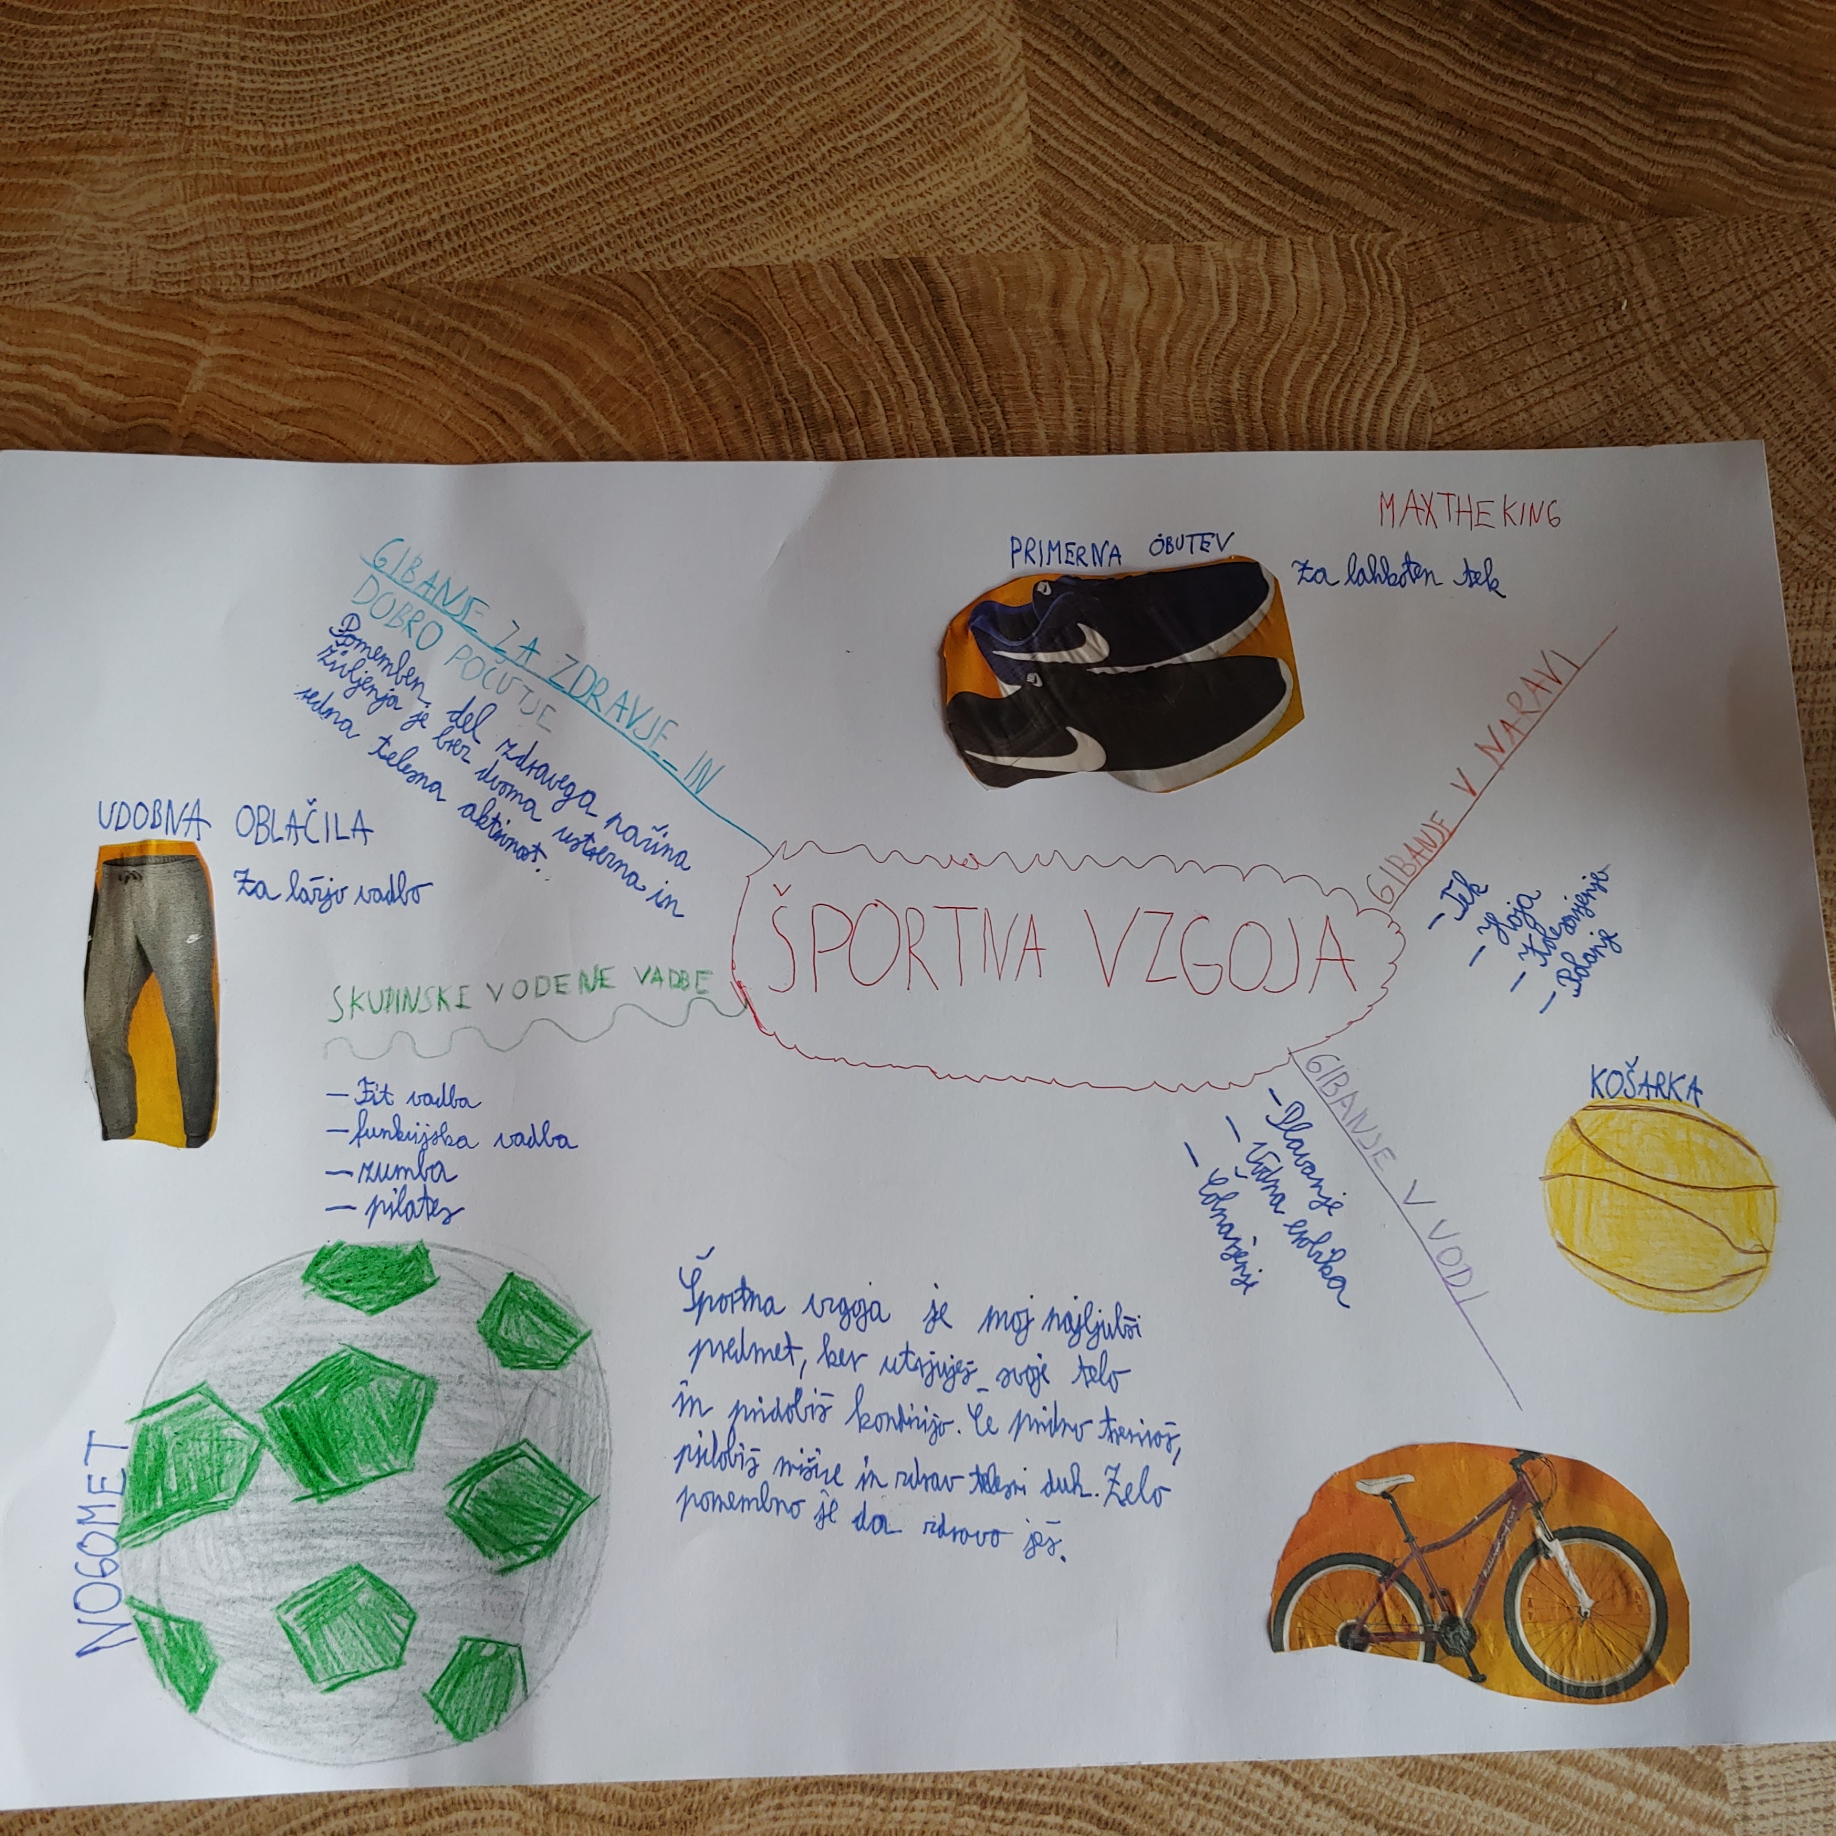 MAXTHEKING
PRIMERNA OBUTEV
Za lahkoten tek
GIBANJE ZA ZDRAVJE IN
DOBRO POČUTJE
Pomemben del zdravega načina
življenja je brez dvoma ustrezna in
redna telesna aktivnost.
UDOBNA OBLAČILA
Za lažjo vadbo
GIBANJE V NARAVI
- Tek
- Hoja
- Kolesarjenje
ŠPORTNA VZGOJA
SKUPINSKE VODENE VADBE
- Fit vadba
- funkcijska vadba
- zumba
- pilates
GIBANJE V VODI
- Plavanje
- Vodna
- Čolnarjenje
KOŠARKA
NOGOMET
Športna vzgoja je moj najljubši
predmet, ker utrjuješ svoje telo
in pridobiš kondicijo. Če pridno treniraš,
pridobiš mišice in zdrav telesni duh. Zelo
pomembno je da zdravo ješ.